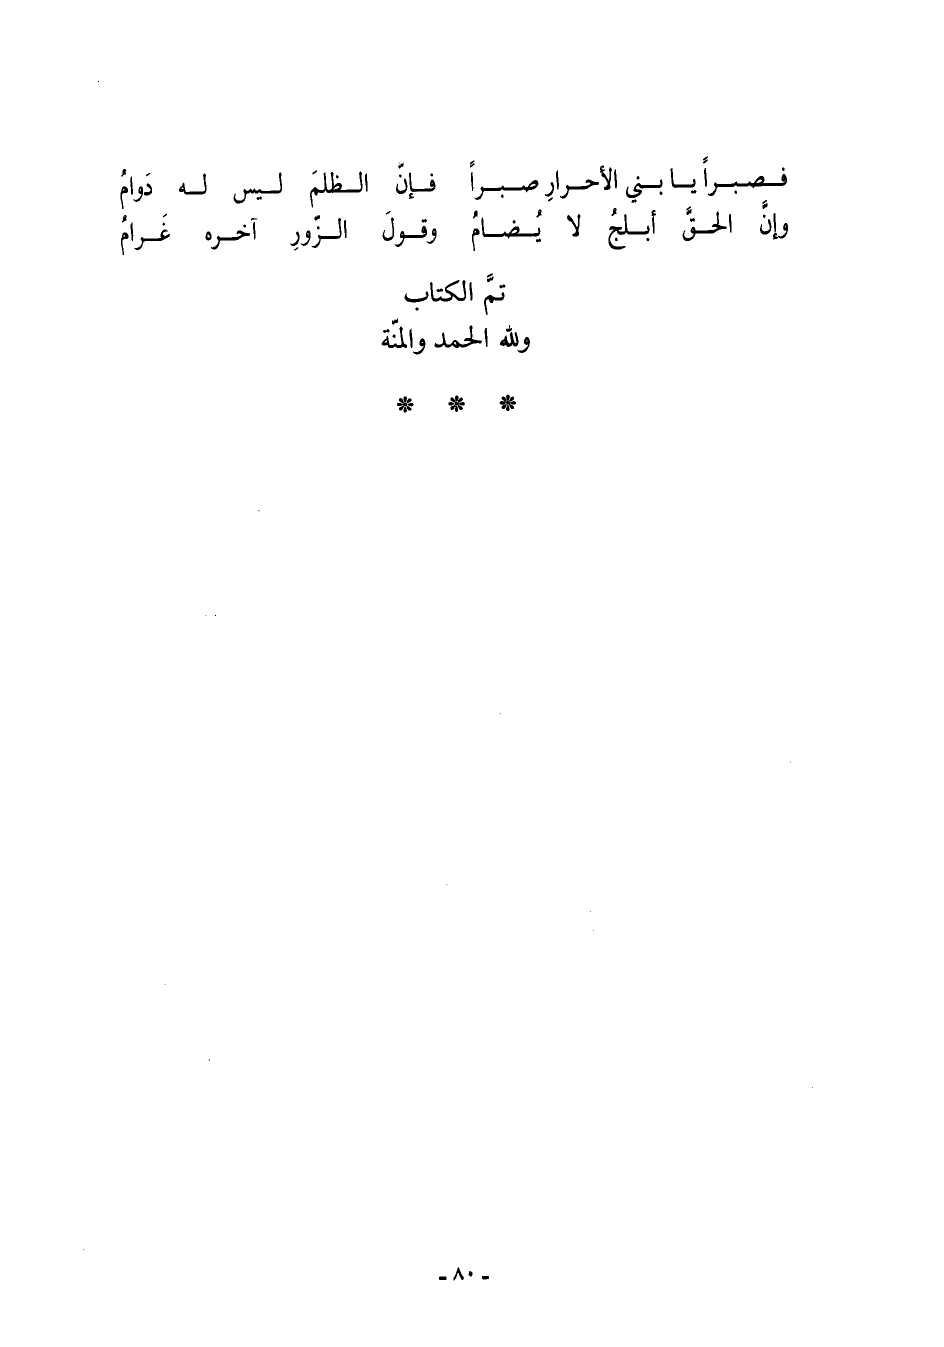 فصبراً يا بني الأحرارِ صبراً فإنّ الظلمَ ليس له دَوامُ
وإنَّ الحقَّ أبلجُ لا يُضامُ وقولَ الزّورِ آخره غَرامُ
تمَّ الكتاب
ولله الحمد والمنّة
* * *
- ٨٠ -